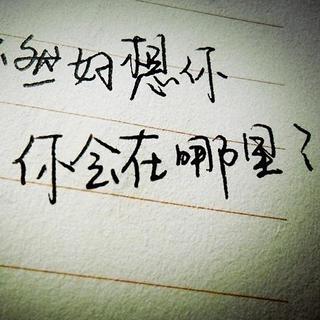 然好想你
你会在哪里?